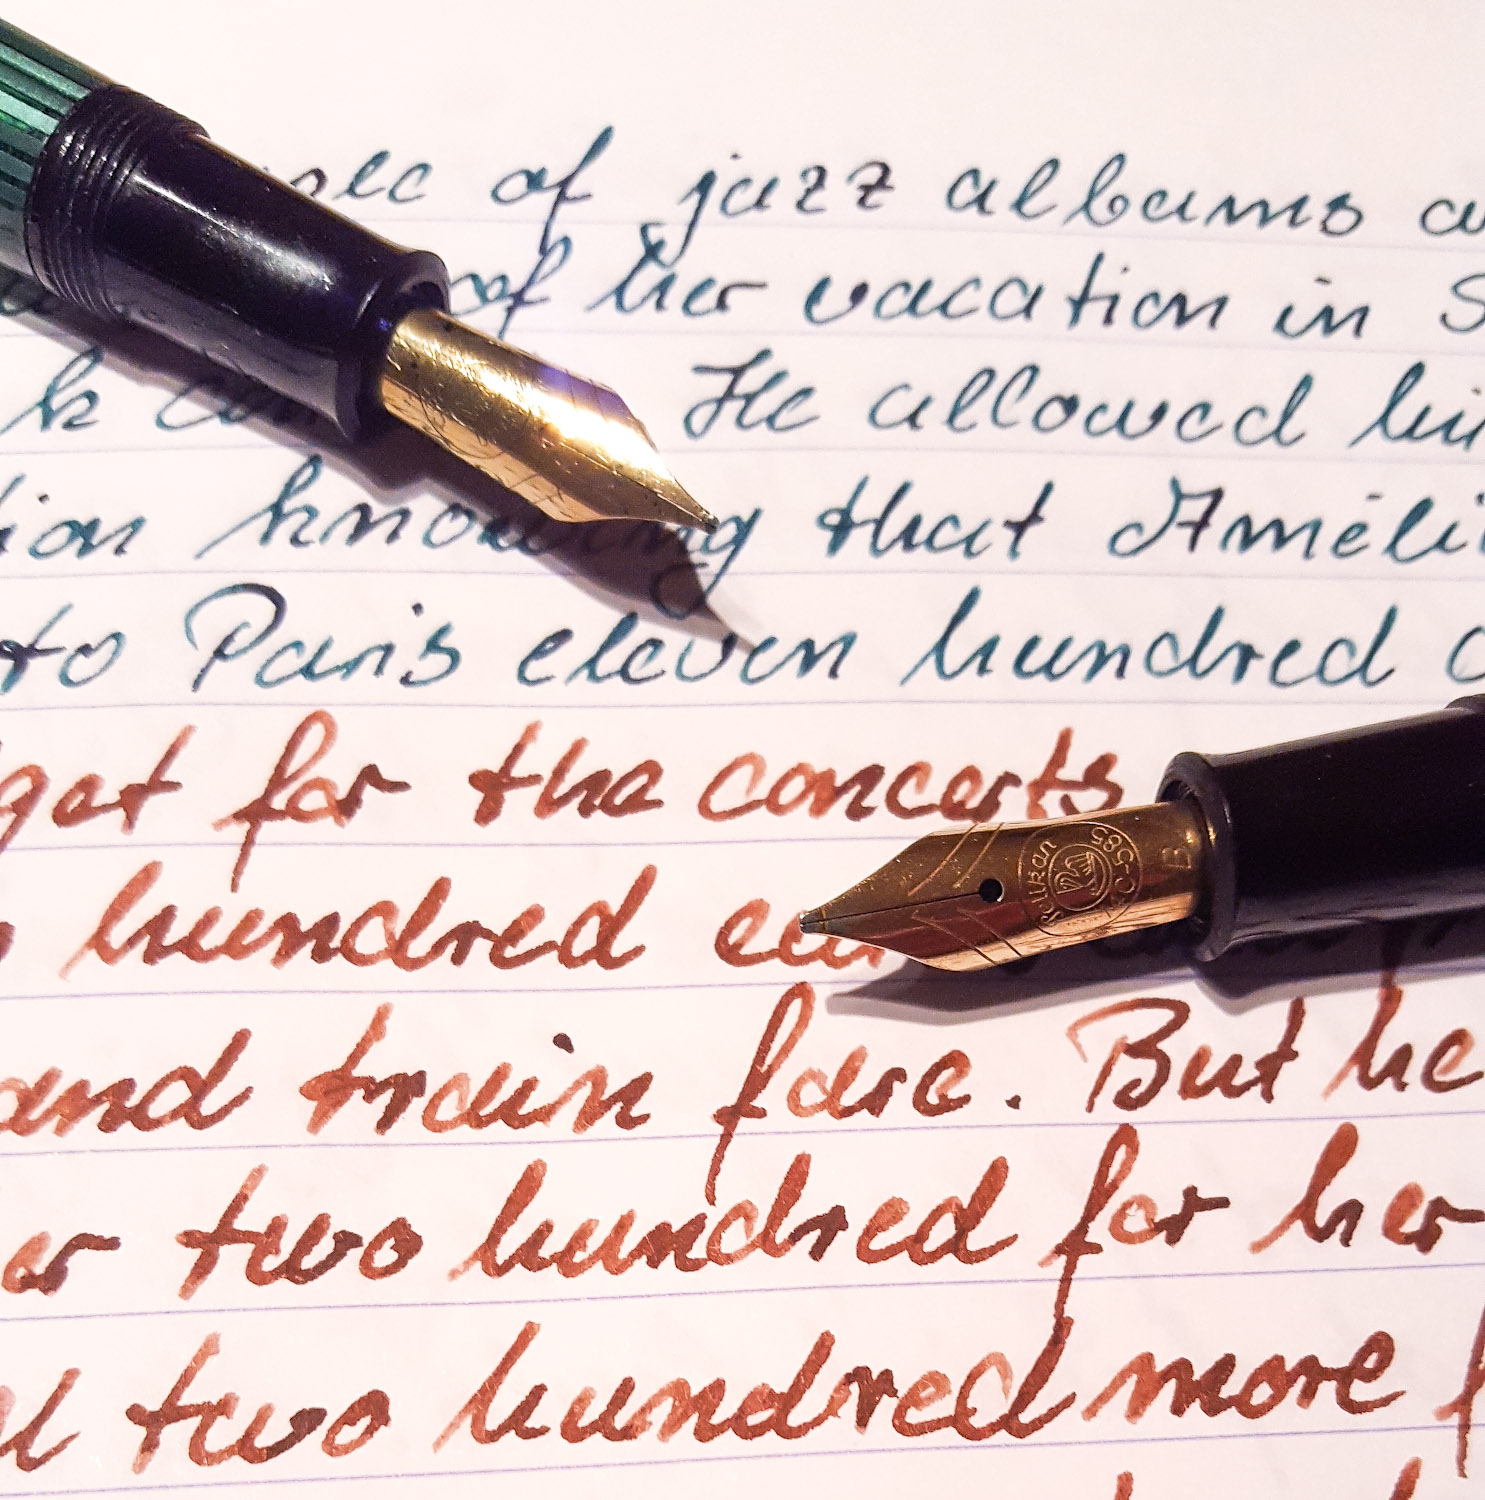 of jazz albums
of her vacation in S
He allowed
knowing that Améli
to Paris eleven hundred
get for the concerts
hundred
and train fare. But he
er two hundred for her
two hundred more
Pelikan 14C-585
B